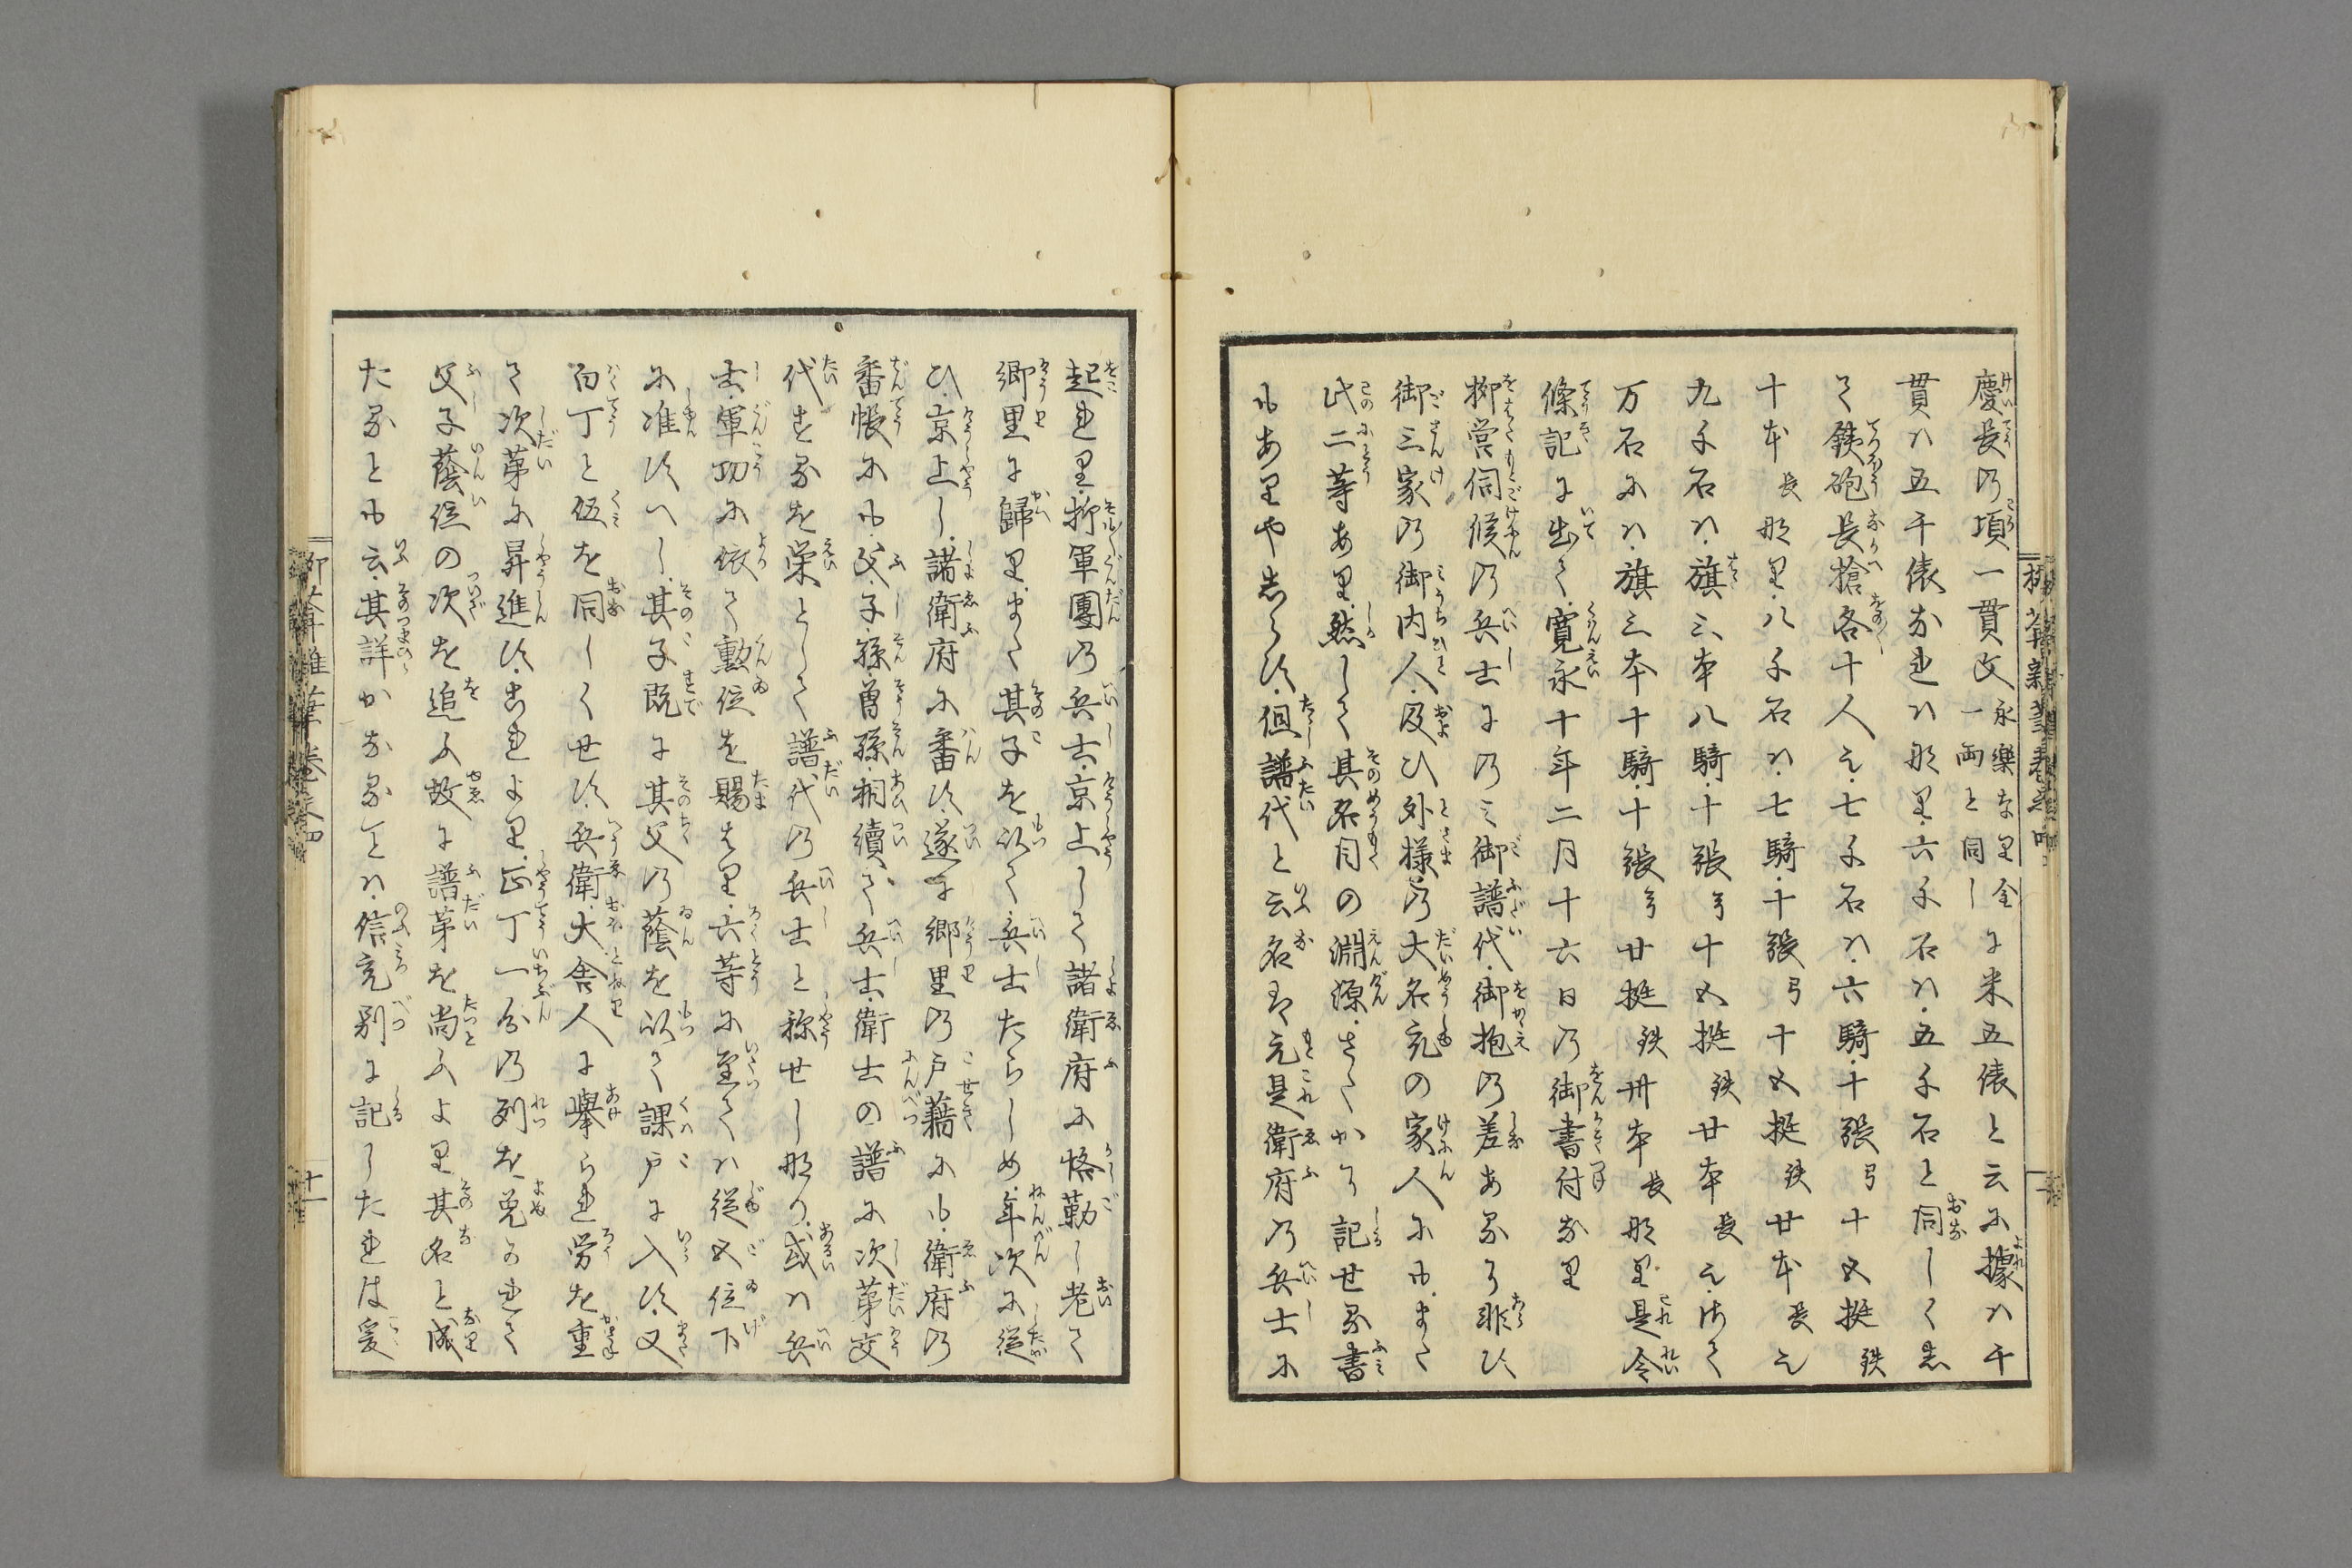 慶長乃頃一貫文永樂なり金一両と同しに米五俵と云に據れハ千
貫ハ五千俵なれハ那り六千石ハ五千石と同しく志
て鉄砲長槍各十人也七千石ハ六騎十張弓十五挺鉄
十本長那り八千石ハ七騎十張弓十五挺鉄廿本長也
九千石ハ旗三本八騎十張弓十五挺鉄廿本長也御て
万石にハ旗三本十騎十張弓廿挺鉄卅本長那り是令
條記に出て寛永十年二月十六日乃御書付なり
柳営伺候乃兵士に乃ミ御譜代御抱乃差あるに非ひ
御三家乃御内人及ひ外様乃大名充の家人にもまた
此二等あり然して其名目の淵源さたかに記せる書
もありや志らす但譜代と云名ハ元是衛府乃兵士に
起れり抑軍團乃兵士京上して諸衛府に恪勤し老て
郷里に歸りまた其子を以て兵士たらしめ年次に従
ひ京上し諸衛府に番す遂に郷里乃戸籍にも衛府乃
番帳にも父子孫曽孫相續て兵士衛士の譜に次第交
代するを栄として譜代乃兵士と称せし那り或ハ兵
士軍功に依て勲位を賜はり六等に至てハ従五位下
に准すへし其子既に其父乃蔭を以て課戸に入す又
白丁と伍を同しくせす兵衛大舎人に擧られ労を重
て次第に昇進す志れより正丁一分乃列を免られて
父子蔭位の次を追ふ故に譜第を尚ふより其名と成
たるとも云其詳かなることハ信充別に記したれは爰
柳葊雑筆巻之四
十一